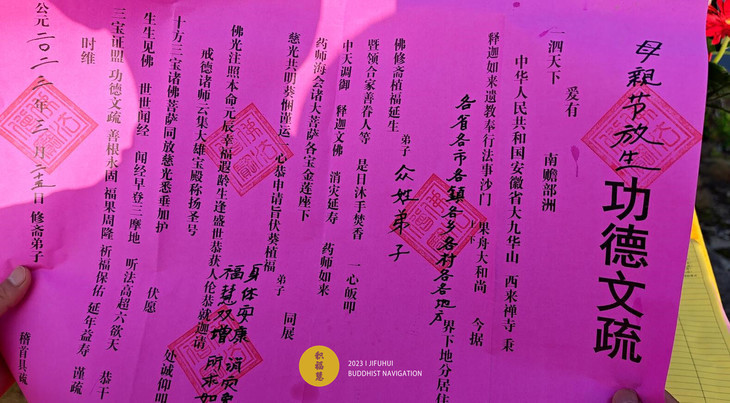 母親节放生功德文疏
一泗天下 爰有 南赡部洲
中华人民共和国安徽省大九华山 西来禅寺 秉
释迦如来遗教奉行法事沙门 上果下舟大和尚 今据
各省各市各鎮各乡各村各各地 界下地分居住
佛修斋植福延生 弟子 众姓弟子
暨领合家善眷人等 是日沐手焚香 一心皈叩
中天调御 释迦文佛 消灾延寿 药师如来
药师海会诸大菩萨各宝金莲座下
慈光共明葵悃谨运一心恭申请旨伏葵植福 弟子 同展
佛光注照本命元辰幸福遐龄生逢盛世恭获人伦恭就迦请
身体安康 消灾
福慧双增 所求如
戒德诸师云集大雄宝殿称扬圣号 处诚仰叩
十方三宝诸佛菩萨同放慈光悉垂加护 伏愿
生生见佛 世世闻经 闻经早登三摩地 听法高超六欲天 恭干
三宝证盟 功德文疏 善根永固 福果周隆 祈福保佑 延年益寿 谨疏
时维
公元二〇二三年三月二十五日 修斋弟子 稽首具疏
积福慧
2023 I JIFUHUI
BUDDHIST NAVIGATION